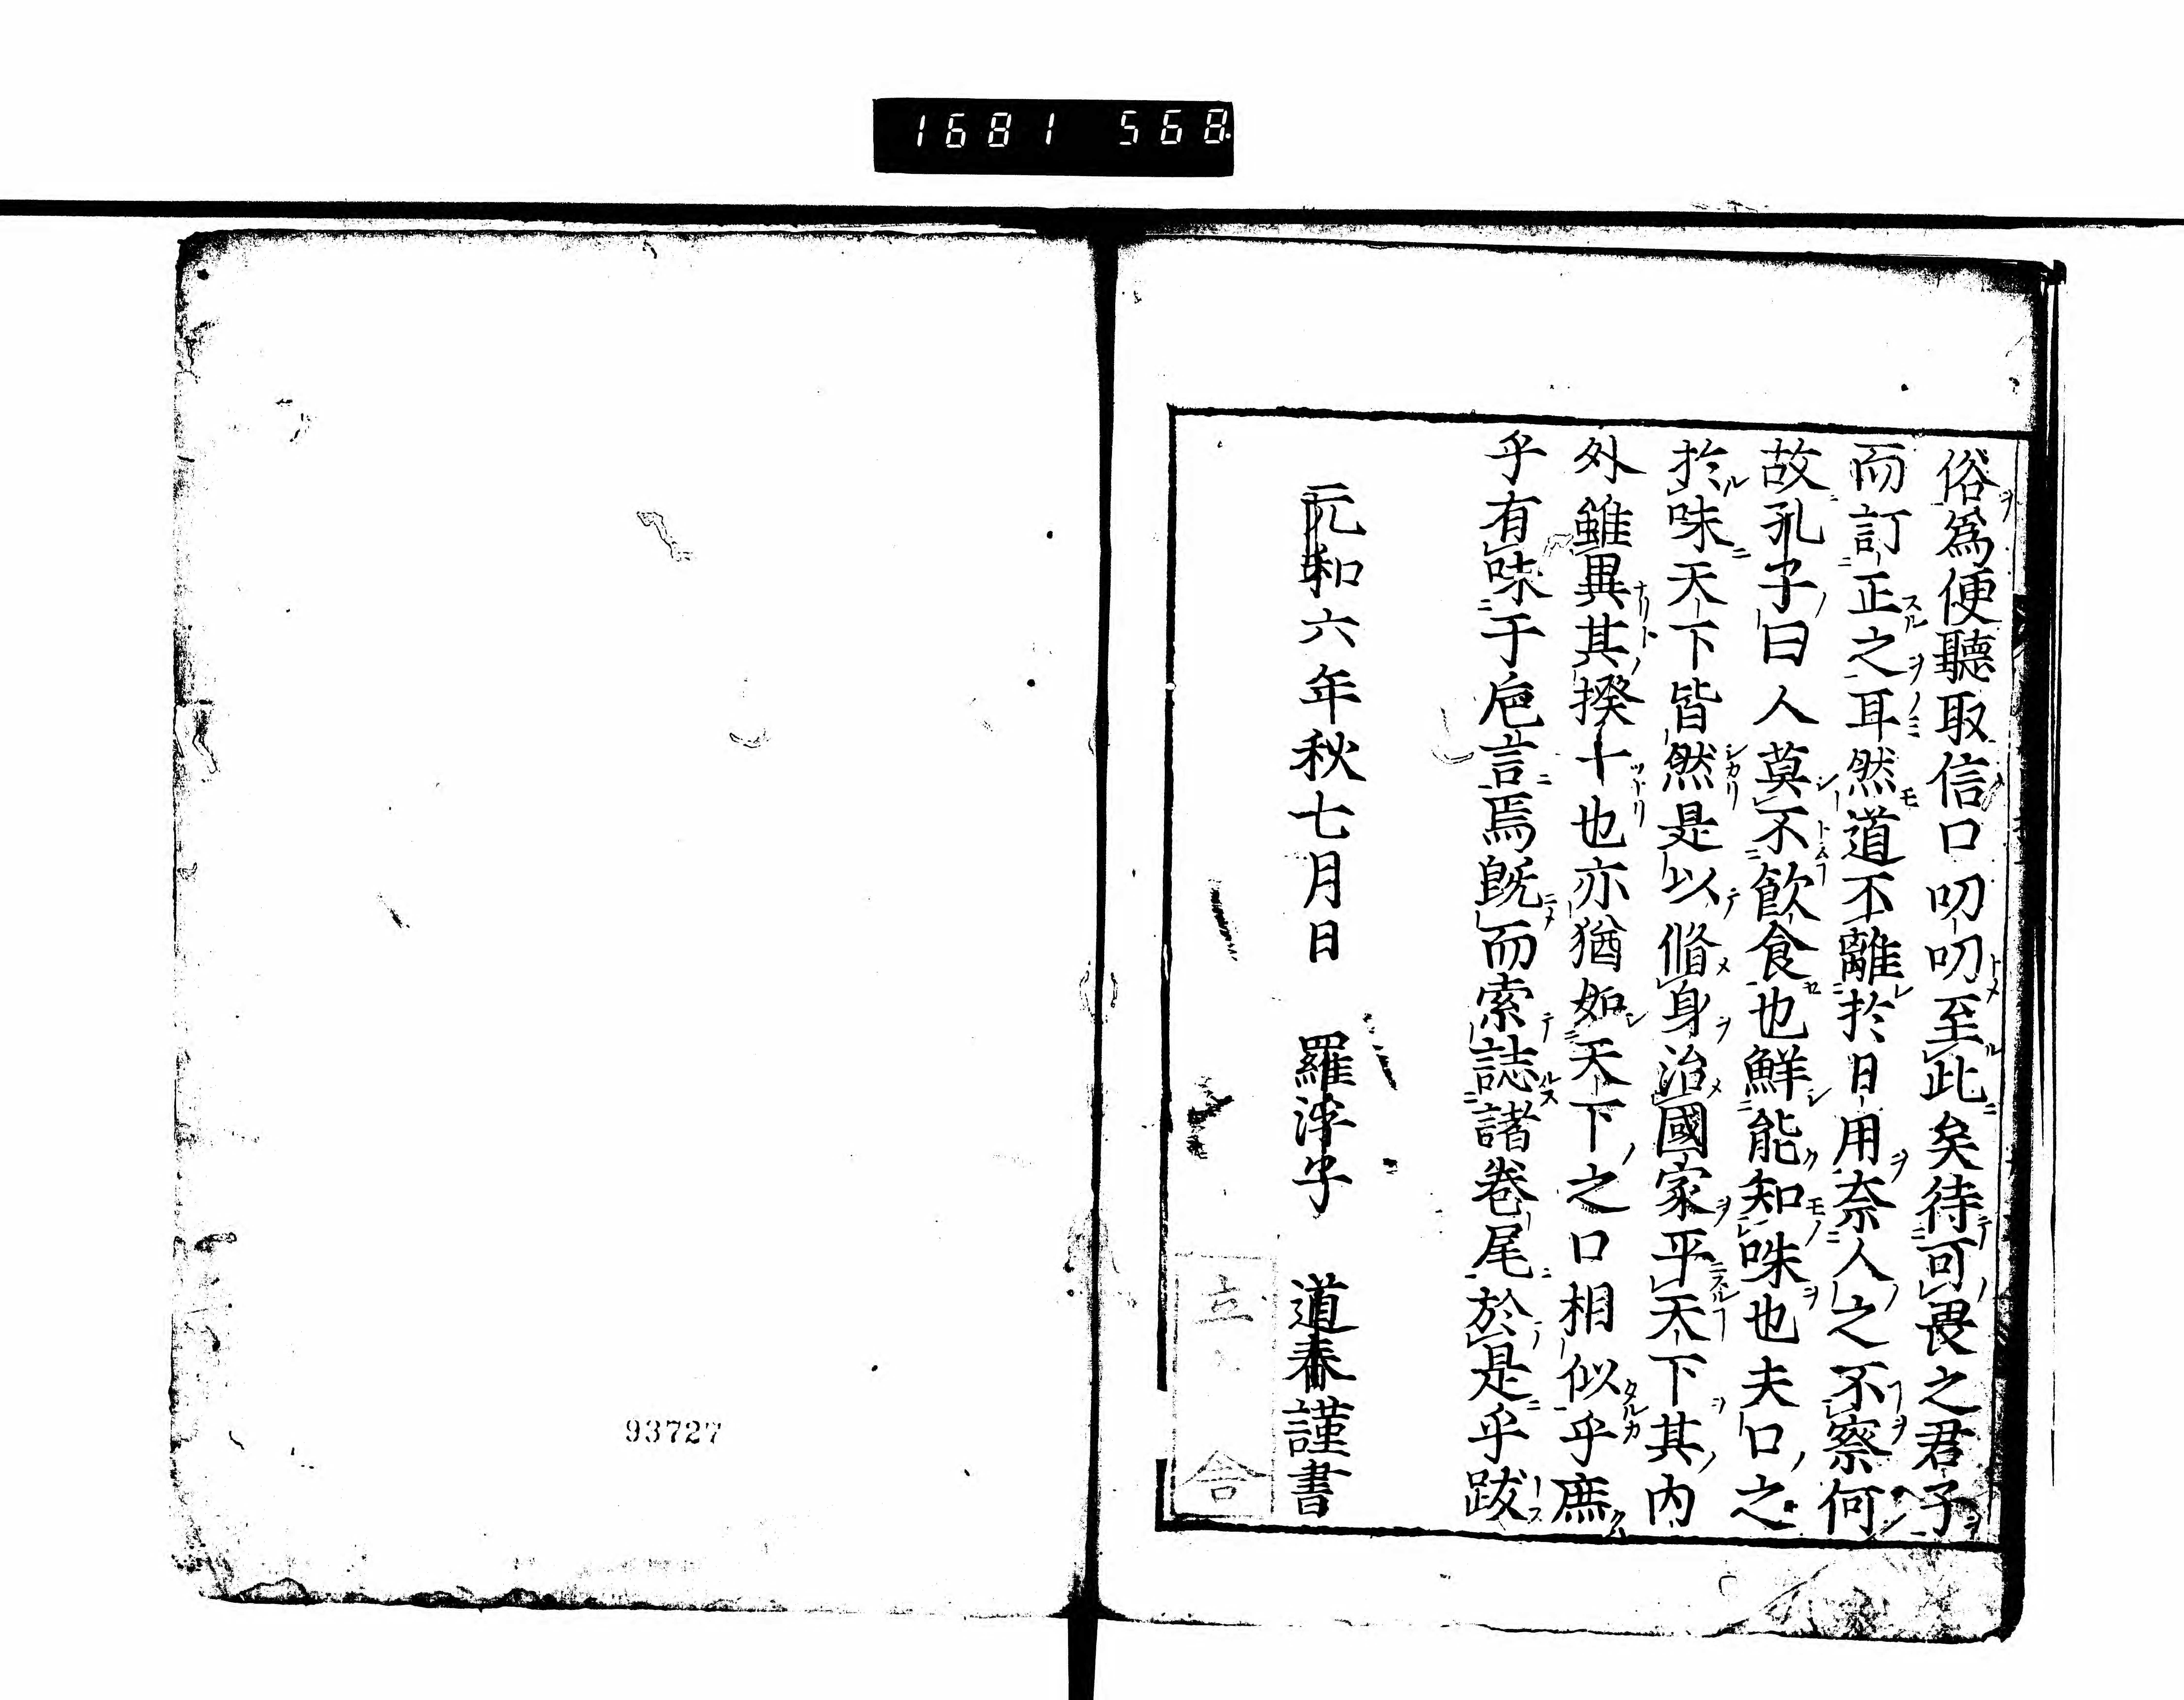 1681 568
俗爲便聽取信口叨叨至此矣待可畏之君子
而訂正之耳然道不離於日用奈人之不察何
故孔子曰人莫不飲食也鮮能知味也夫口之
於味天下皆然是以脩身治國家平天下其内
外雖異其揆十也亦猶如天下之口相似乎庶
乎有味于巵言焉既而索誌諸巻尾於是乎跋
元和六年秋七月日　羅浮子　道春謹書
93727